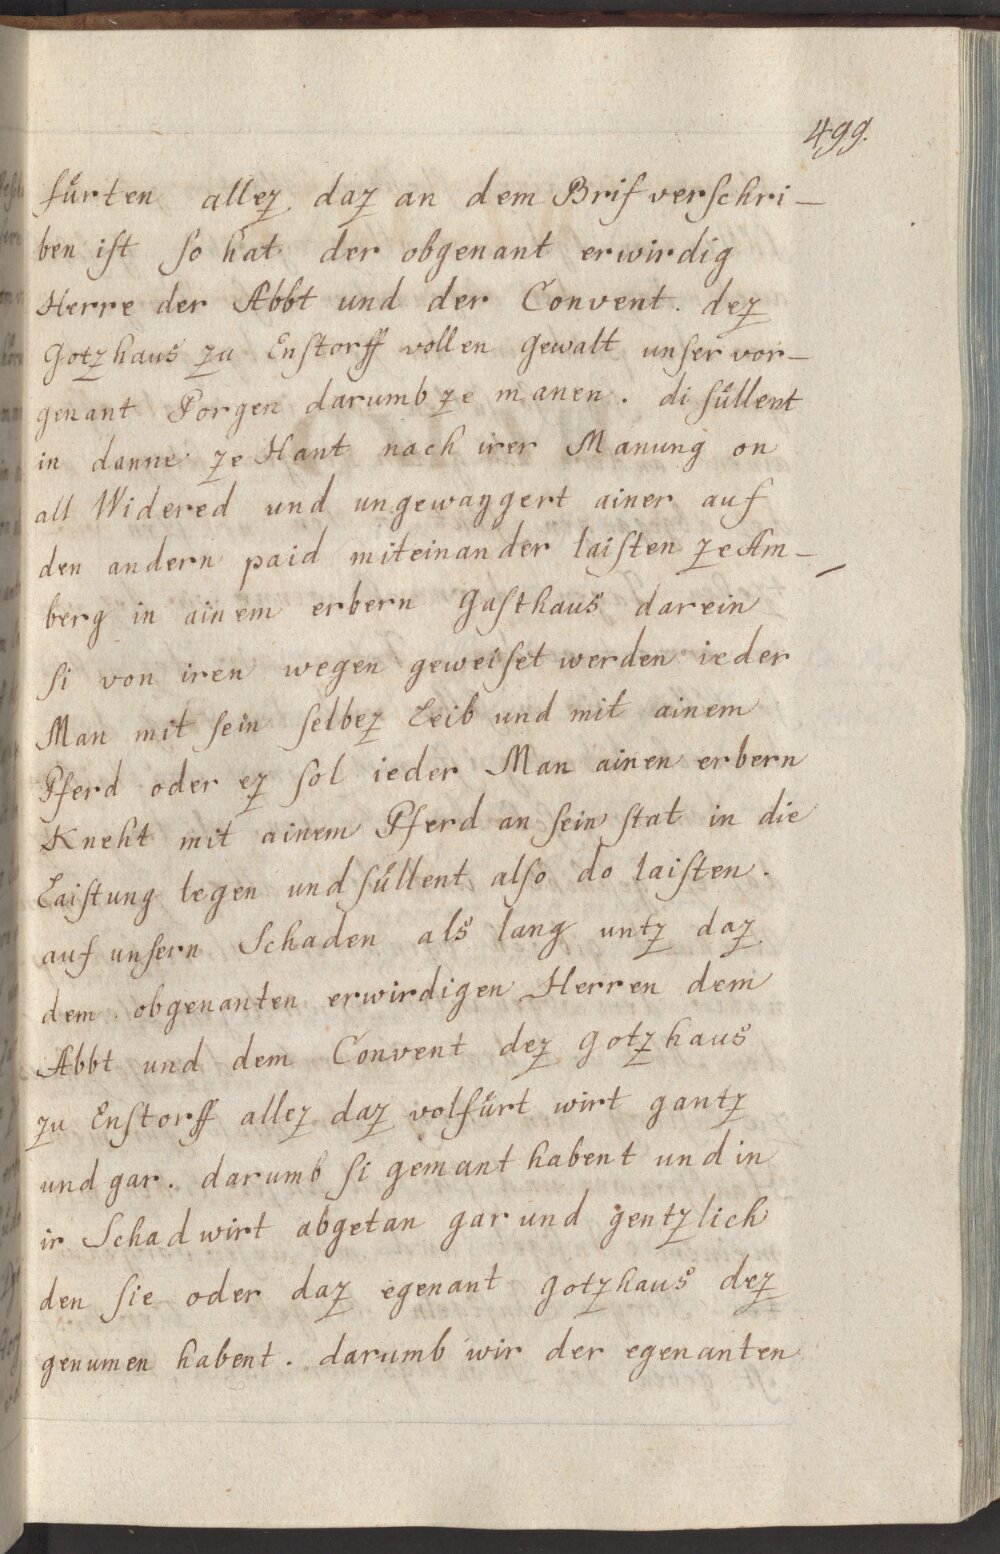 499.
fürten allez daz an dem Brif verschri-
ben ist so hat der obgenant erwirdig
Herre der Abbt und der Convent. dez
Gotzhaus zu Enstorff vollen Gewalt unser vor-
genant Porgen darumb ze manen. di süllent
in danne ze Hant nach irer Manung on
all Widered und ungewaygert ainer auf
den andern paid miteinander laisten ze Am-
berg in ainem erbern Gasthaus darein
si von iren wegen geweiset werden ieder
Man mit sein selbez Leib und mit ainem
Pferd oder ez sol ieder Man ainen erbern
Kneht mit ainem Pferd an sein stat in die
Laistung legen und süllent also do laisten.
auf unsern Schaden als lang untz daz
dem obgenanten erwirdigen Herren dem
Abbt und dem Convent dez Gotzhaus
zu Enstorff allez daz volfürt wirt gantz
und gar. darumb si gemant habent und in
ir Schad wirt abgetan gar und gentzlich
den sie oder daz egenant Gotzhaus dez
genumen habent. darumb wir der egenanten